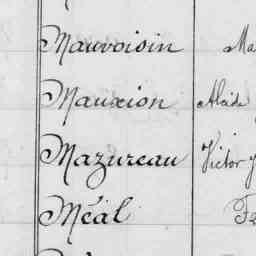 Mauvoisin Ma
Mauxion Alcide
Mazureau Victor J
Méal Fe